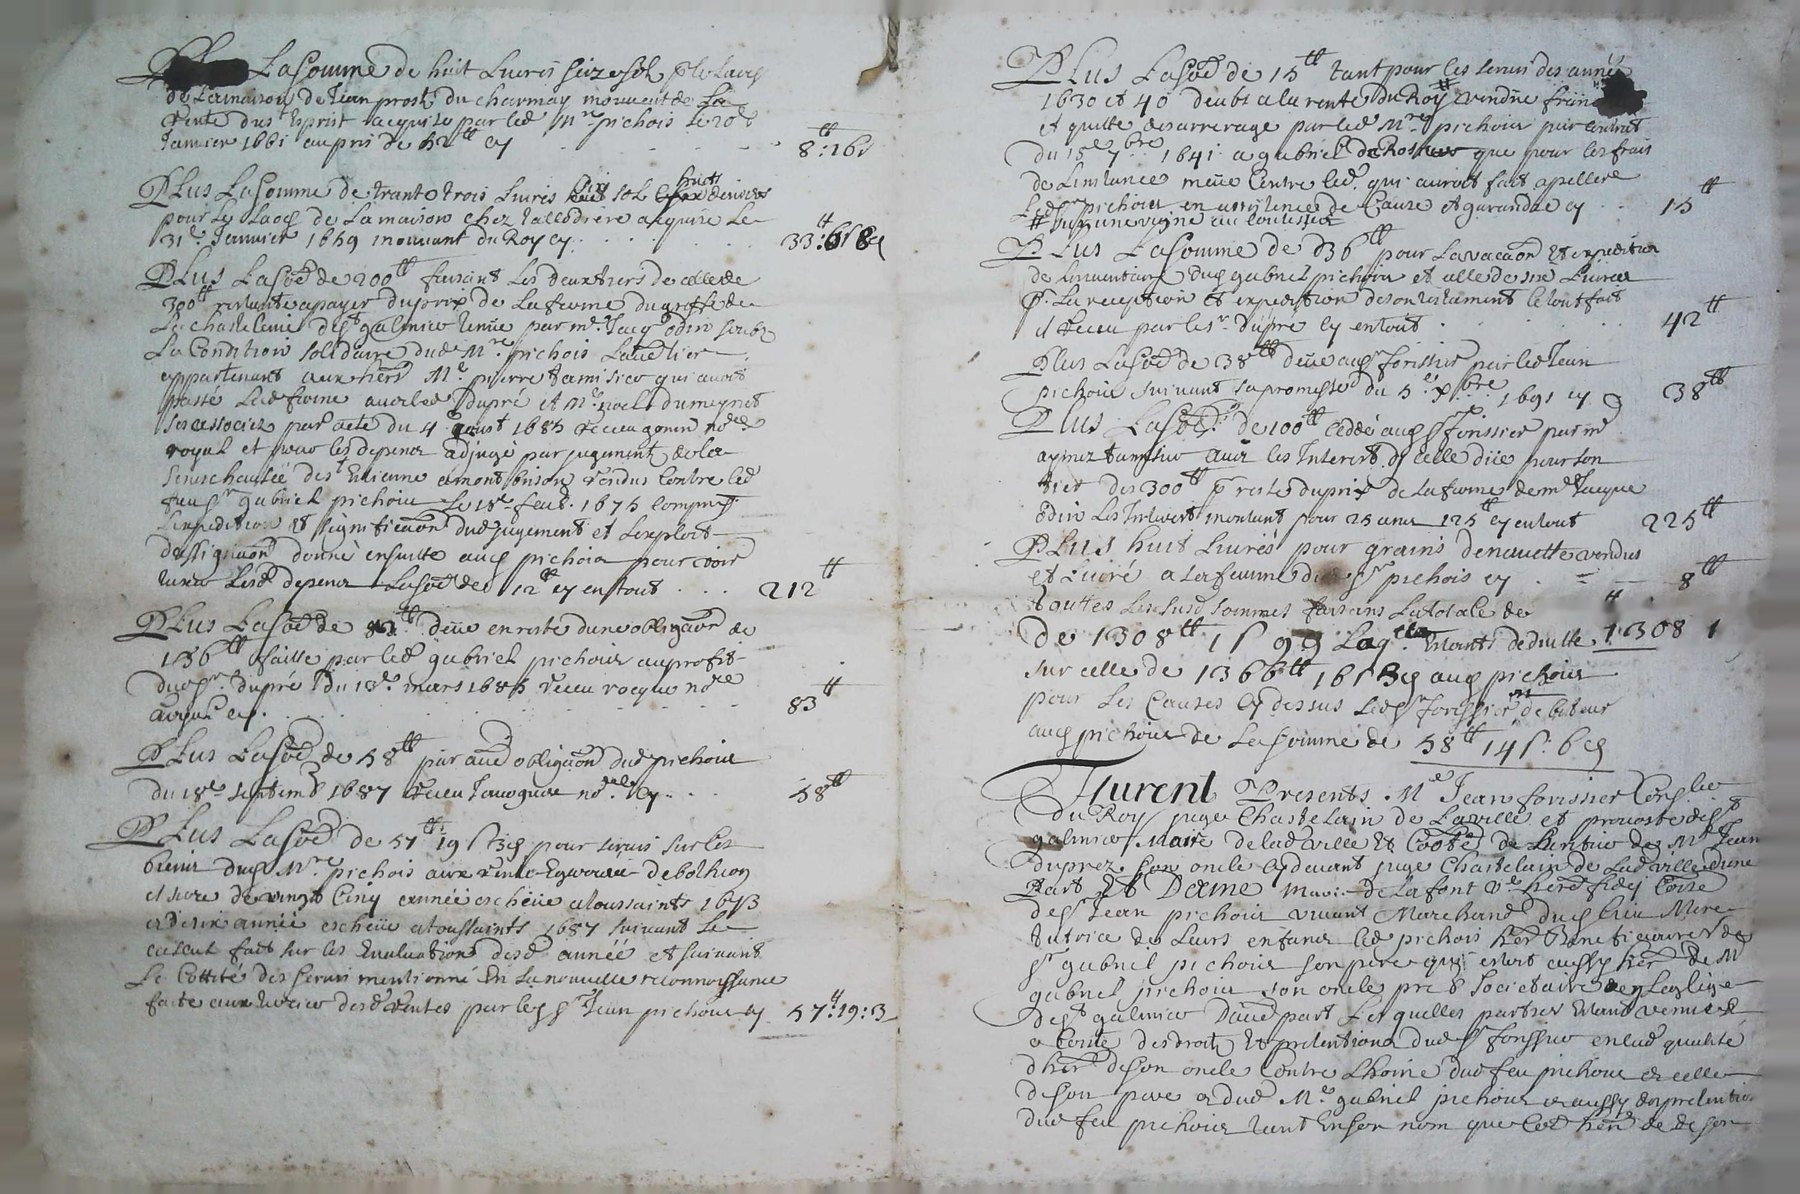 Plus La Somme de huit Livres Seize sols p. le Laods
de La maison de Jean prost du charmay mouvent de La
Rente du st Esprit acquise par led Mre pichois le 20e
Janvier 1661 au pris de 52tt cy 8: 16s
Plus La Somme de trante trois Livres six sols huict deniers
pour Le Laods de La maison chez tallodiere acquise Le
31e Janvier 1659 mouvant du Roy cy 33:6s 8d
Plus La Soe de 200tt faisant Les deux tiers de celle de
300tt restante a payer du prix de La ferme du greffe de
La chastelenie de st galmier tenue par me Jacq odin soubz
La Condition solidaire dud Mre pichois Laue tier
appartenant aux hers Me pierre tamisier qui avoit
passé Lad ferme avec led dupré et Me noel dumeynet
ses associez par acte du 4 aoust 1685 receu gonin nore
royal et pour les depens adjugé par jugement de la
Seneschaussée des Estienne a montbrison rendus Contre led
feu sr gabriel pichois le 18e feb. 1675 compris
L'expedition et signification dud jugement et L'exploit
d'assignaon donné ensuitte aud pichois pour voir
taxer Lesd depens La soe de 12tt cy en tout 212tt
Plus La Soe de 83tt deüe en reste dune obligaon de
136tt faitte par led gabriel pichois au profit
dud sr dupré du 18e mars 1685 receu rocque nore
royal cy 83tt
Plus La Soe de 58tt par autre obligaon dud pichois
du 18e septemb 1687 receu nore cy 58tt
Plus La Soe de 57tt 19s 3d pour servis sur Les
biens dud Mre pichois aux rentes de bothieon
et sure de vingt Cinq année escheüe a toussaints 1673
et deux année escheüe a toussaints 1687 suivant Le
calcul fait sur les Evaluations desd année et suivant
Le Cottité des servis mentionné En La nouvelle reconnoissance
faite aux terrier desd rentes par led sr Jean pichois cy 57:19:3
Plus La Soe de 15tt tant pour les servis des année
1630 et 40 deubs a la rente du Roy
et quitte d'arrerage par led Mre pichois par Contrat
du 15e 7bre 1641 a gabriel que pour les frais
de L'instance meüe Contre led qui auroit fait apeller
Led sr pichois en assistence de Cause et garandie cy 15tt
# sur une vigne au
Plus La Somme de 36tt pour La vacaon et expedition
de L'inventaire dud gabriel pichois et celle de six Livres
p. La reception et expedition de son testament le tout fait
et receu par le sr dupre cy en tout 42tt
Plus La Soe de 38tt deüe aud sr forissier par led Jean
pichois suivant sa promesse du 5e xbre 1691 cy 38tt
Plus La Soe de 100tt Cedée aud sr forissier par mr
aymez tamisier avec les Interest de celle diie pour son
tier des 300tt p reste du prix de La ferme de me Jacque
odin Les Interest montant pour 25 annes 125tt cy en tout 225tt
Plus huit Livres pour grains de navette vendus
et Livré a La femme dud sr pichois cy 8tt
Touttes Les susd sommes faisans La totale de
de 1308tt 1s 9d Laqlle Estant deduitte 1308 1
sur celle de 1366tt 16s 3d aud pichois
pour Les Causes cy dessus Led sr forissier est debiteur
aud pichois de La Somme de 58tt 14s. 6d
Furent Presents. Me Jean forissier Conser
du Roy juge Chastelain de La ville et prevosté de st
galmier, Maire de lad ville et Coheritier de Me Jean
duprez son oncle cy devant juge Chastelain de Lad ville dune
Part Et Dame Marie de Lafont ve
de sr Jean pichois vivant Marchand dud Lieu Mere
tutrice de Leurs enfans led pichois her Beneficiaire de
sr gabriel pichois son pere qui estoit aussy her de Me
gabriel pichois son oncle prebre Societaire en Leglise
de st galmier dautre part Lesquelles parties Estans venues
a Conte des droits et pretentions dud sr forissier en lad qualité
d'her de son oncle Contre L'hoirie dud feu pichois et celle
de son pere et dud Me gabriel pichois et aussy des pretentions
dud feu pichois tant En son nom que Co'e her de de son